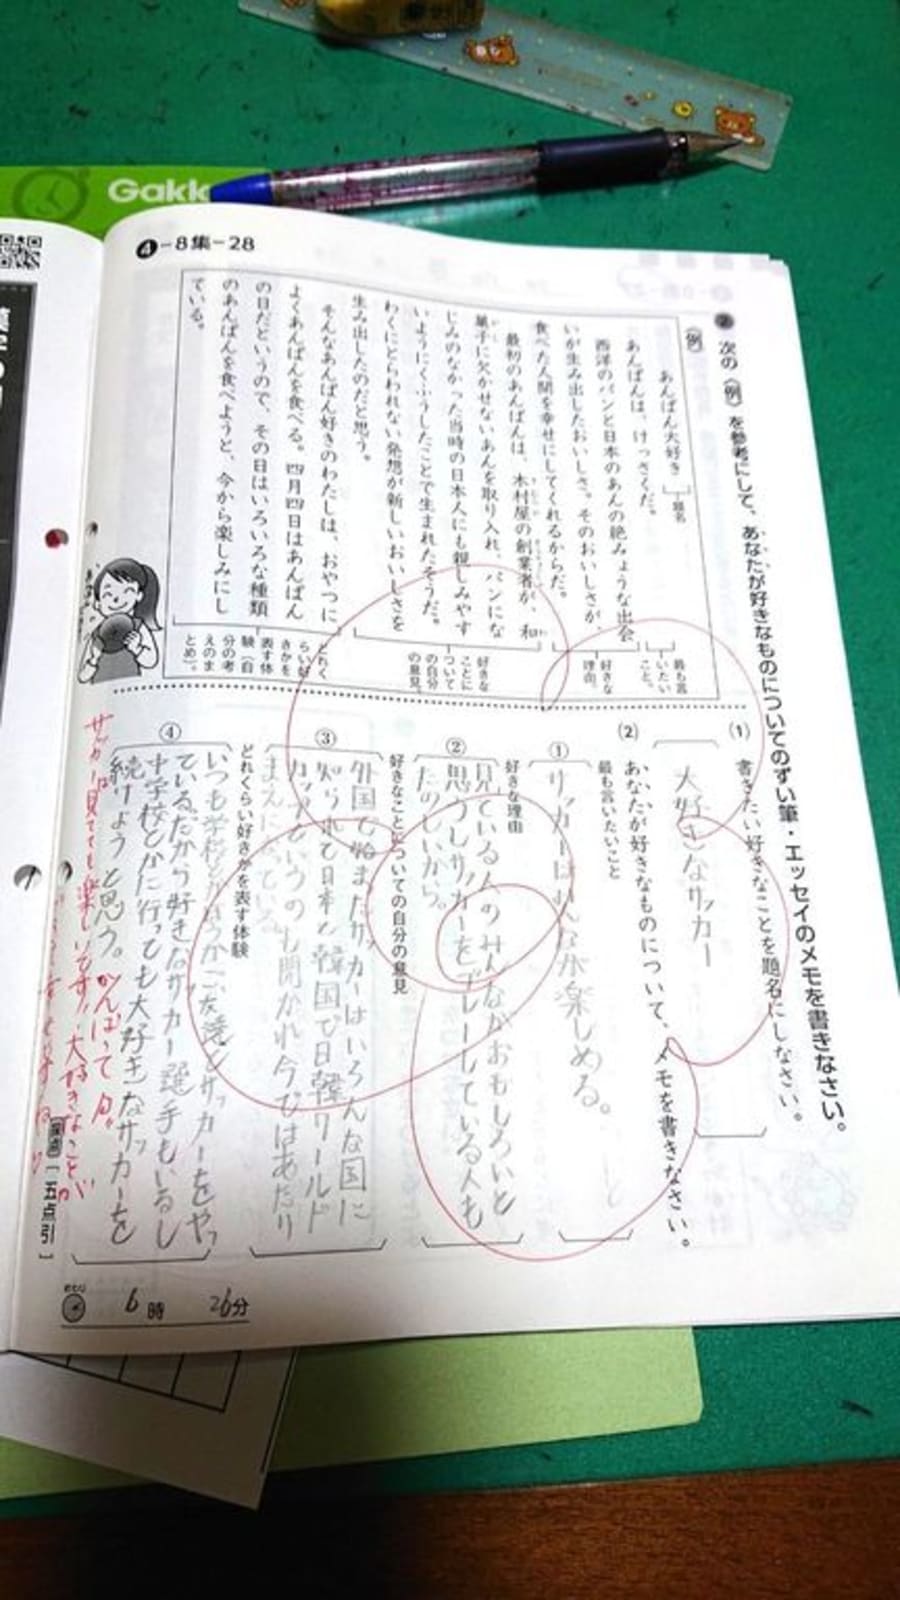 Gakk
❹-8集-28
❷ 次の〈例〉を参考にして、あなたが好きなものについてのずい筆・エッセイのメモを書きなさい。
〈例〉
あんぱん大好き
題名
あんぱんは、けっさくだ。
西洋のパンと日本のあんの絶みょうな出会
いが生み出したおいしさ。そのおいしさが、
食べた人間を幸せにしてくれるからだ。
最初のあんぱんは、木村屋の創業者が、和
菓子に欠かせないあんを取り入れ、パンにな
じみのなかった当時の日本人にも親しみやす
いようにくふうしたことで生まれたそうだ。
わくにとらわれない発想が新しいおいしさを
生み出したのだと思う。
そんなあんぱん好きのわたしは、おやつに
よくあんぱんを食べる。四月四日はあんぱん
の日だというので、その日はいろいろな種類
のあんぱんを食べようと、今から楽しみにし
ている。
最も言
いたい
こと。
好きな
理由。
好きな
ことに
ついて
の自分
の意見。
どれく
らい好
きかを
表す体
験(自
分の考
えのま
とめ)。
(1) 書きたい好きなことを題名にしなさい。
大好きなサッカー
(2) あなたが好きなものについて、メモを書きなさい。
① 最も言いたいこと
サッカーはみんな楽しめる。
② 好きな理由
見ている人のみんながおもしろいと
思うしサッカーをプレーしている人も
たのしいから。
③ 好きなことについての自分の意見
外国で始まったサッカーはいろんな国に
知られて日本と韓国で日韓ワールド
カップというのも開かれ今ではあたり
まえ
④ どれくらい好きかを表す体験
いつも学校とか
友達とサッカーをやっ
ている。だから好きなサッカー選手もいるし
中学校とかに行っても大好きなサッカーを
続けようと思う。
サッカーは見てても楽しいです!
大好きなことが
「五点引」
6時 26分